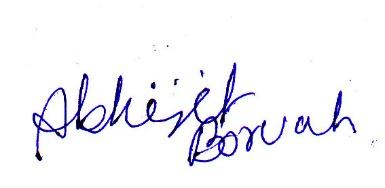 Abhijit
Boruah